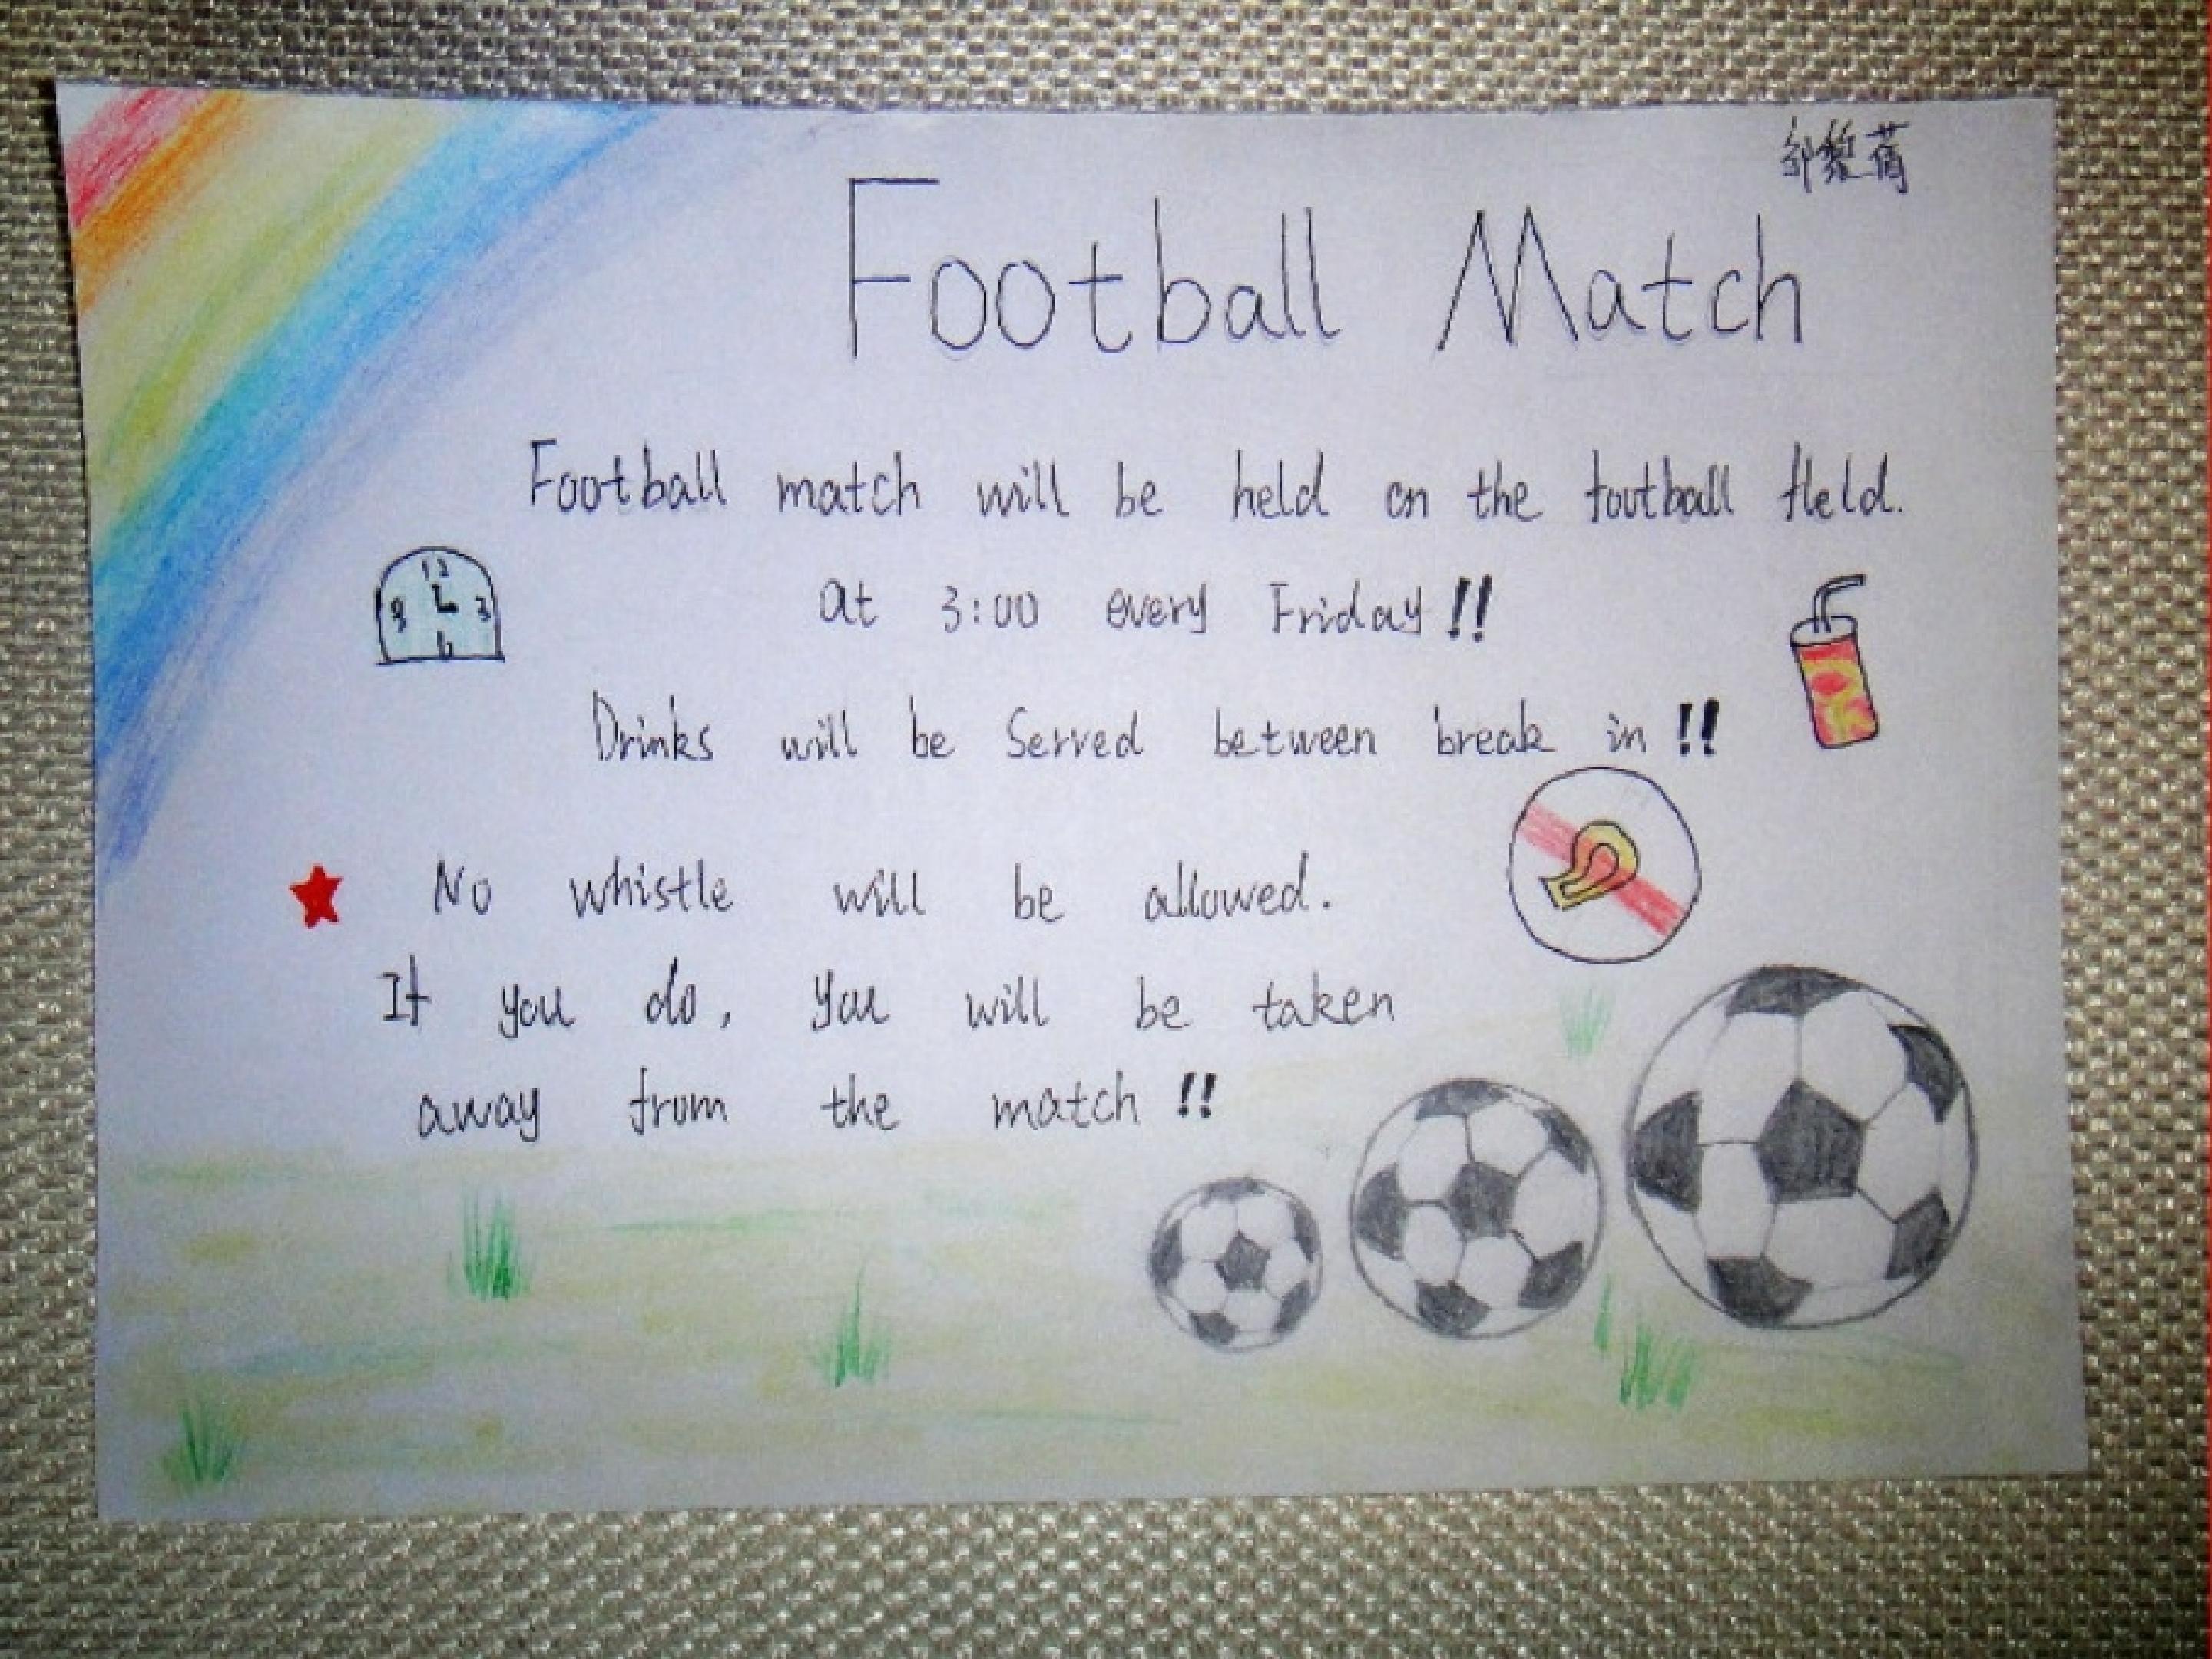 邹黎蒨
Football Match
Football match will be held on the football field.
12
9 3
6
at 3:00 every Friday!!
Drinks will be Served between break in!!
No whistle will be allowed.
If you do, you will be taken
away from the match!!